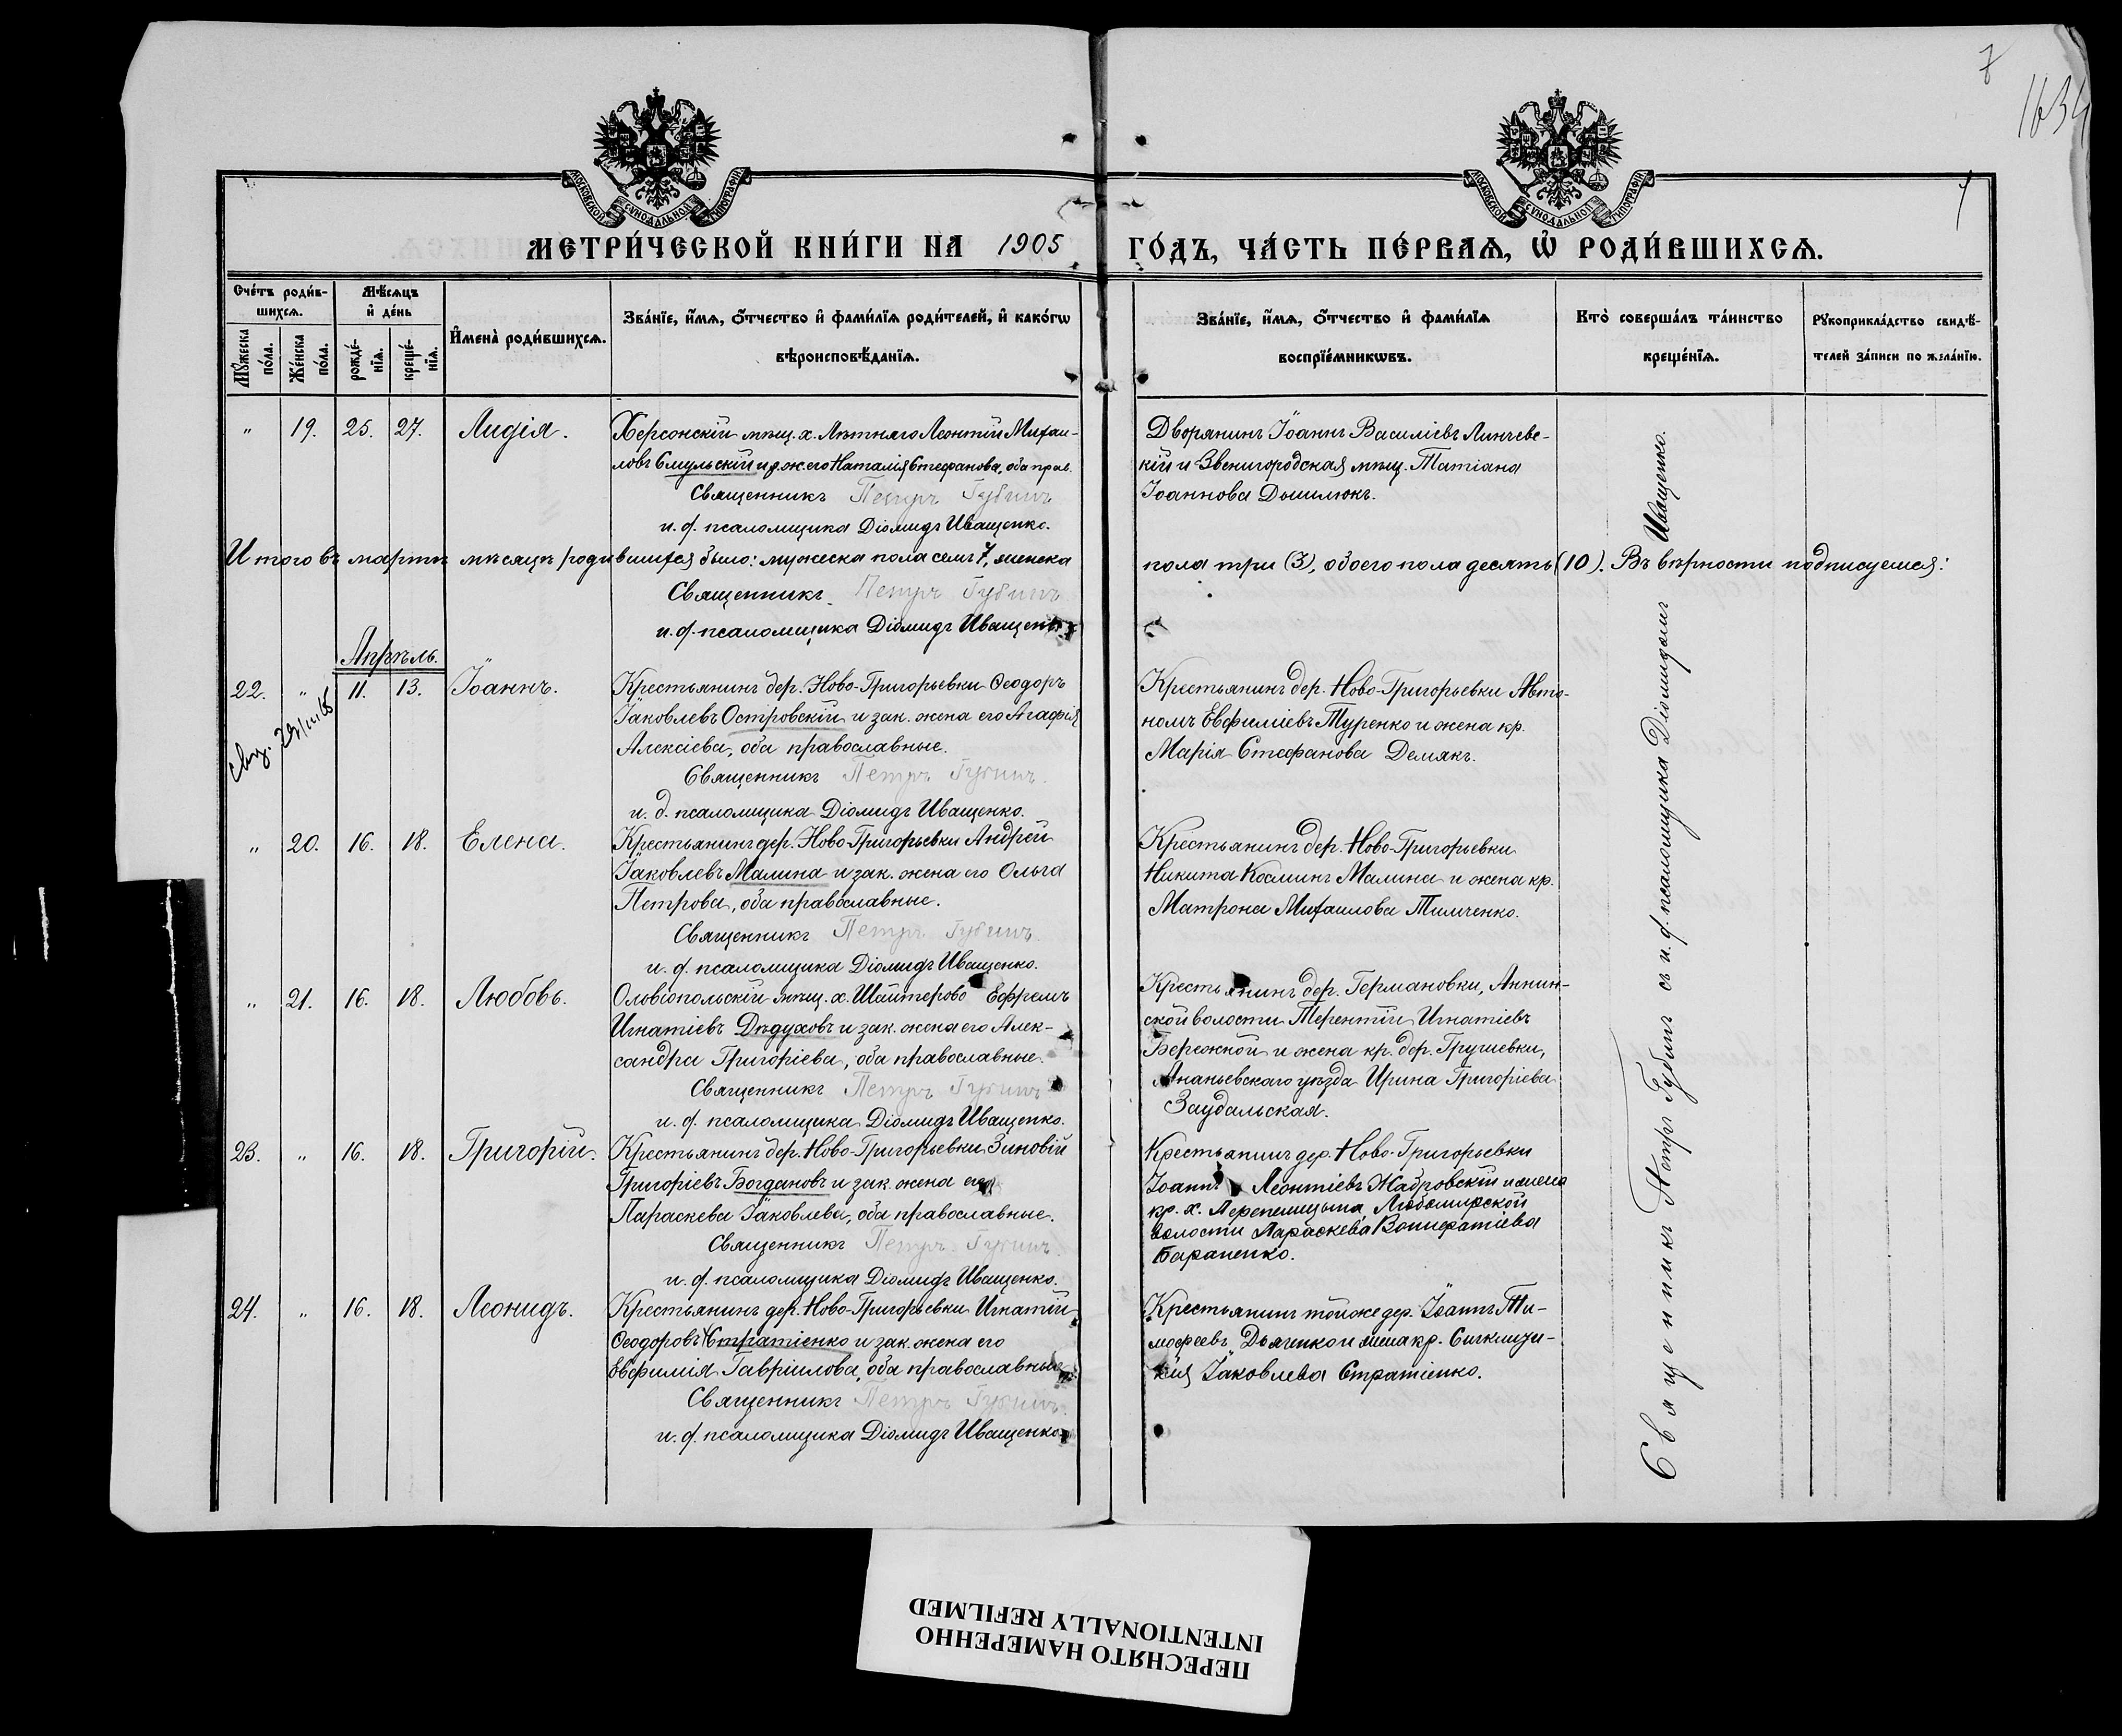 7
1634
7
МОСКОВСКОЙ СѴНОДАЛЬНОЙ ТИПОГРАФІИ
МОСКОВСКОЙ СѴНОДАЛЬНОЙ ТИПОГРАФІИ
МЕТРИ́ЧЕСКОЙ КНИ́ГИ НА 1905 ГО́ДЪ, ЧА́СТЬ ПЕ́РВАѦ, Ѽ РОДИ́ВШИХСѦ.
Сче́тъ роди́в-
шихсѧ.
Мꙋ́жеска по́ла.
Же́нска по́ла.
Мѣ́сѧцъ
и҆ де́нь
рожде́-
нїѧ.
креще́-
нїѧ.
И҆мена̀ роди́вшихсѧ.
Зва́нїе, и҆́мѧ, ѻ҆́тчество и҆ фами́лїѧ роди́телей, и҆ како́гѡ
вѣроисповѣ́данїѧ.
Зва́нїе, и҆́мѧ, ѻ҆́тчество и҆ фами́лїѧ
воспрїе́мникѡвъ.
Кто̀ соверша́лъ та́инство
креще́нїѧ.
Рꙋкоприкла́дство свидѣ́-
телей за́писи по жела́нїю.
" 19. 25. 27. Лидія.
Херсонскій мѣщ. х. Лѣтняго Леонтій Михаи-
ловъ Смульскій и з. ж. его Наталія Стефанова, оба прав.
Священникъ Петръ Губинъ
и. д. псаломщика Діомидъ Иващенко.
Дворянинъ Іоаннъ Василіевъ Линчевс-
кій и Звенигородская мѣщ. Татіана
Іоаннова Дышлюкъ.
Итого въ мартѣ мѣсяцѣ родившихся было: мужеска пола семь 7, женска пола три (3), обоего пола десять (10). Въ вѣрности подписуемся:
Священникъ Петръ Губинъ
и. д. псаломщика Діомидъ Иващенко
Апрѣль.
22. " 11. 13. Іоаннъ.
Крестьянинъ дер. Ново-Григорьевки Ѳеодоръ
Іаковлевъ Островскій и зак. жена его Агафія
Алексіева, оба православные.
Священникъ Петръ Губинъ.
и. д. псаломщика Діомидъ Иващенко.
Крестьянинъ дер. Ново-Григорьевки Авто-
номъ Евфиміевъ Туренко и жена кр.
Марія Стефанова Демякъ.
" 20. 16. 18. Елена.
Крестьянинъ дер. Ново-Григорьевки Андрей
Іаковлевъ Малина и зак. жена его Ольга
Петрова, оба православные.
Священникъ Петръ Губинъ
и. д. псаломщика Діомидъ Иващенко.
Крестьянинъ дер. Ново-Григорьевки
Никита Косминъ Малина и жена кр.
Матрона Михаилова Тимченко.
" 21. 16. 18. Любовь.
Ольвіопольскій мѣщ. х. Шайтерово Ефремъ
Игнатіевъ Дѣдуховъ и зак. жена его Алек-
сандра Григоріева, оба православные.
Священникъ Петръ Губинъ
и. д. псаломщика Діомидъ Иващенко.
Крестьянинъ дер. Германовки, Аннин-
ской волости Терентій Игнатіевъ
Бережной и жена кр. дер. Грушевки,
Ананьевскаго уѣзда Ирина Григоріева
Заудальская.
23. " 16. 18. Григорій.
Крестьянинъ дер. Ново-Григорьевки Зиновій
Григоріевъ Богдановъ и зак. жена его
Параскева Іаковлева, оба православные.
Священникъ Петръ Губинъ.
и. д. псаломщика Діомидъ Иващенко.
Крестьянинъ дер. Ново-Григорьевки
Іоаннъ Леонтіевъ Жабровскій и жена
кр. х. Перепелицына, Любомирской
волости Параскева Вонифатіева
Бараненко.
24. " 16. 18. Леонидъ.
Крестьянинъ дер. Ново-Григорьевки Игнатій
Ѳеодоровъ Стратіенко и зак. жена его
Евфимія Гавріилова, оба православные
Священникъ Петръ Губинъ.
и. д. псаломщика Діомидъ Иващенко
Крестьянинъ тойже дер. Іоаннъ Ти-
моѳеевъ Дьяченко и жена кр. Сигклити-
кія Іаковлева Стратіенко.
Священникъ Петръ Губинъ съ и. д. псаломщика Діомидомъ Иващенко.
ПЕРЕСНЯТО НАМЕРЕННО
INTENTIONALLY REFILMED